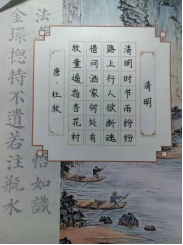 清明
清明时节雨纷纷
路上行人欲断魂
借问酒家何处有
牧童遥指杏花村
唐·杜牧
法
怡如識
金瑔惚持不遺若注瓶水